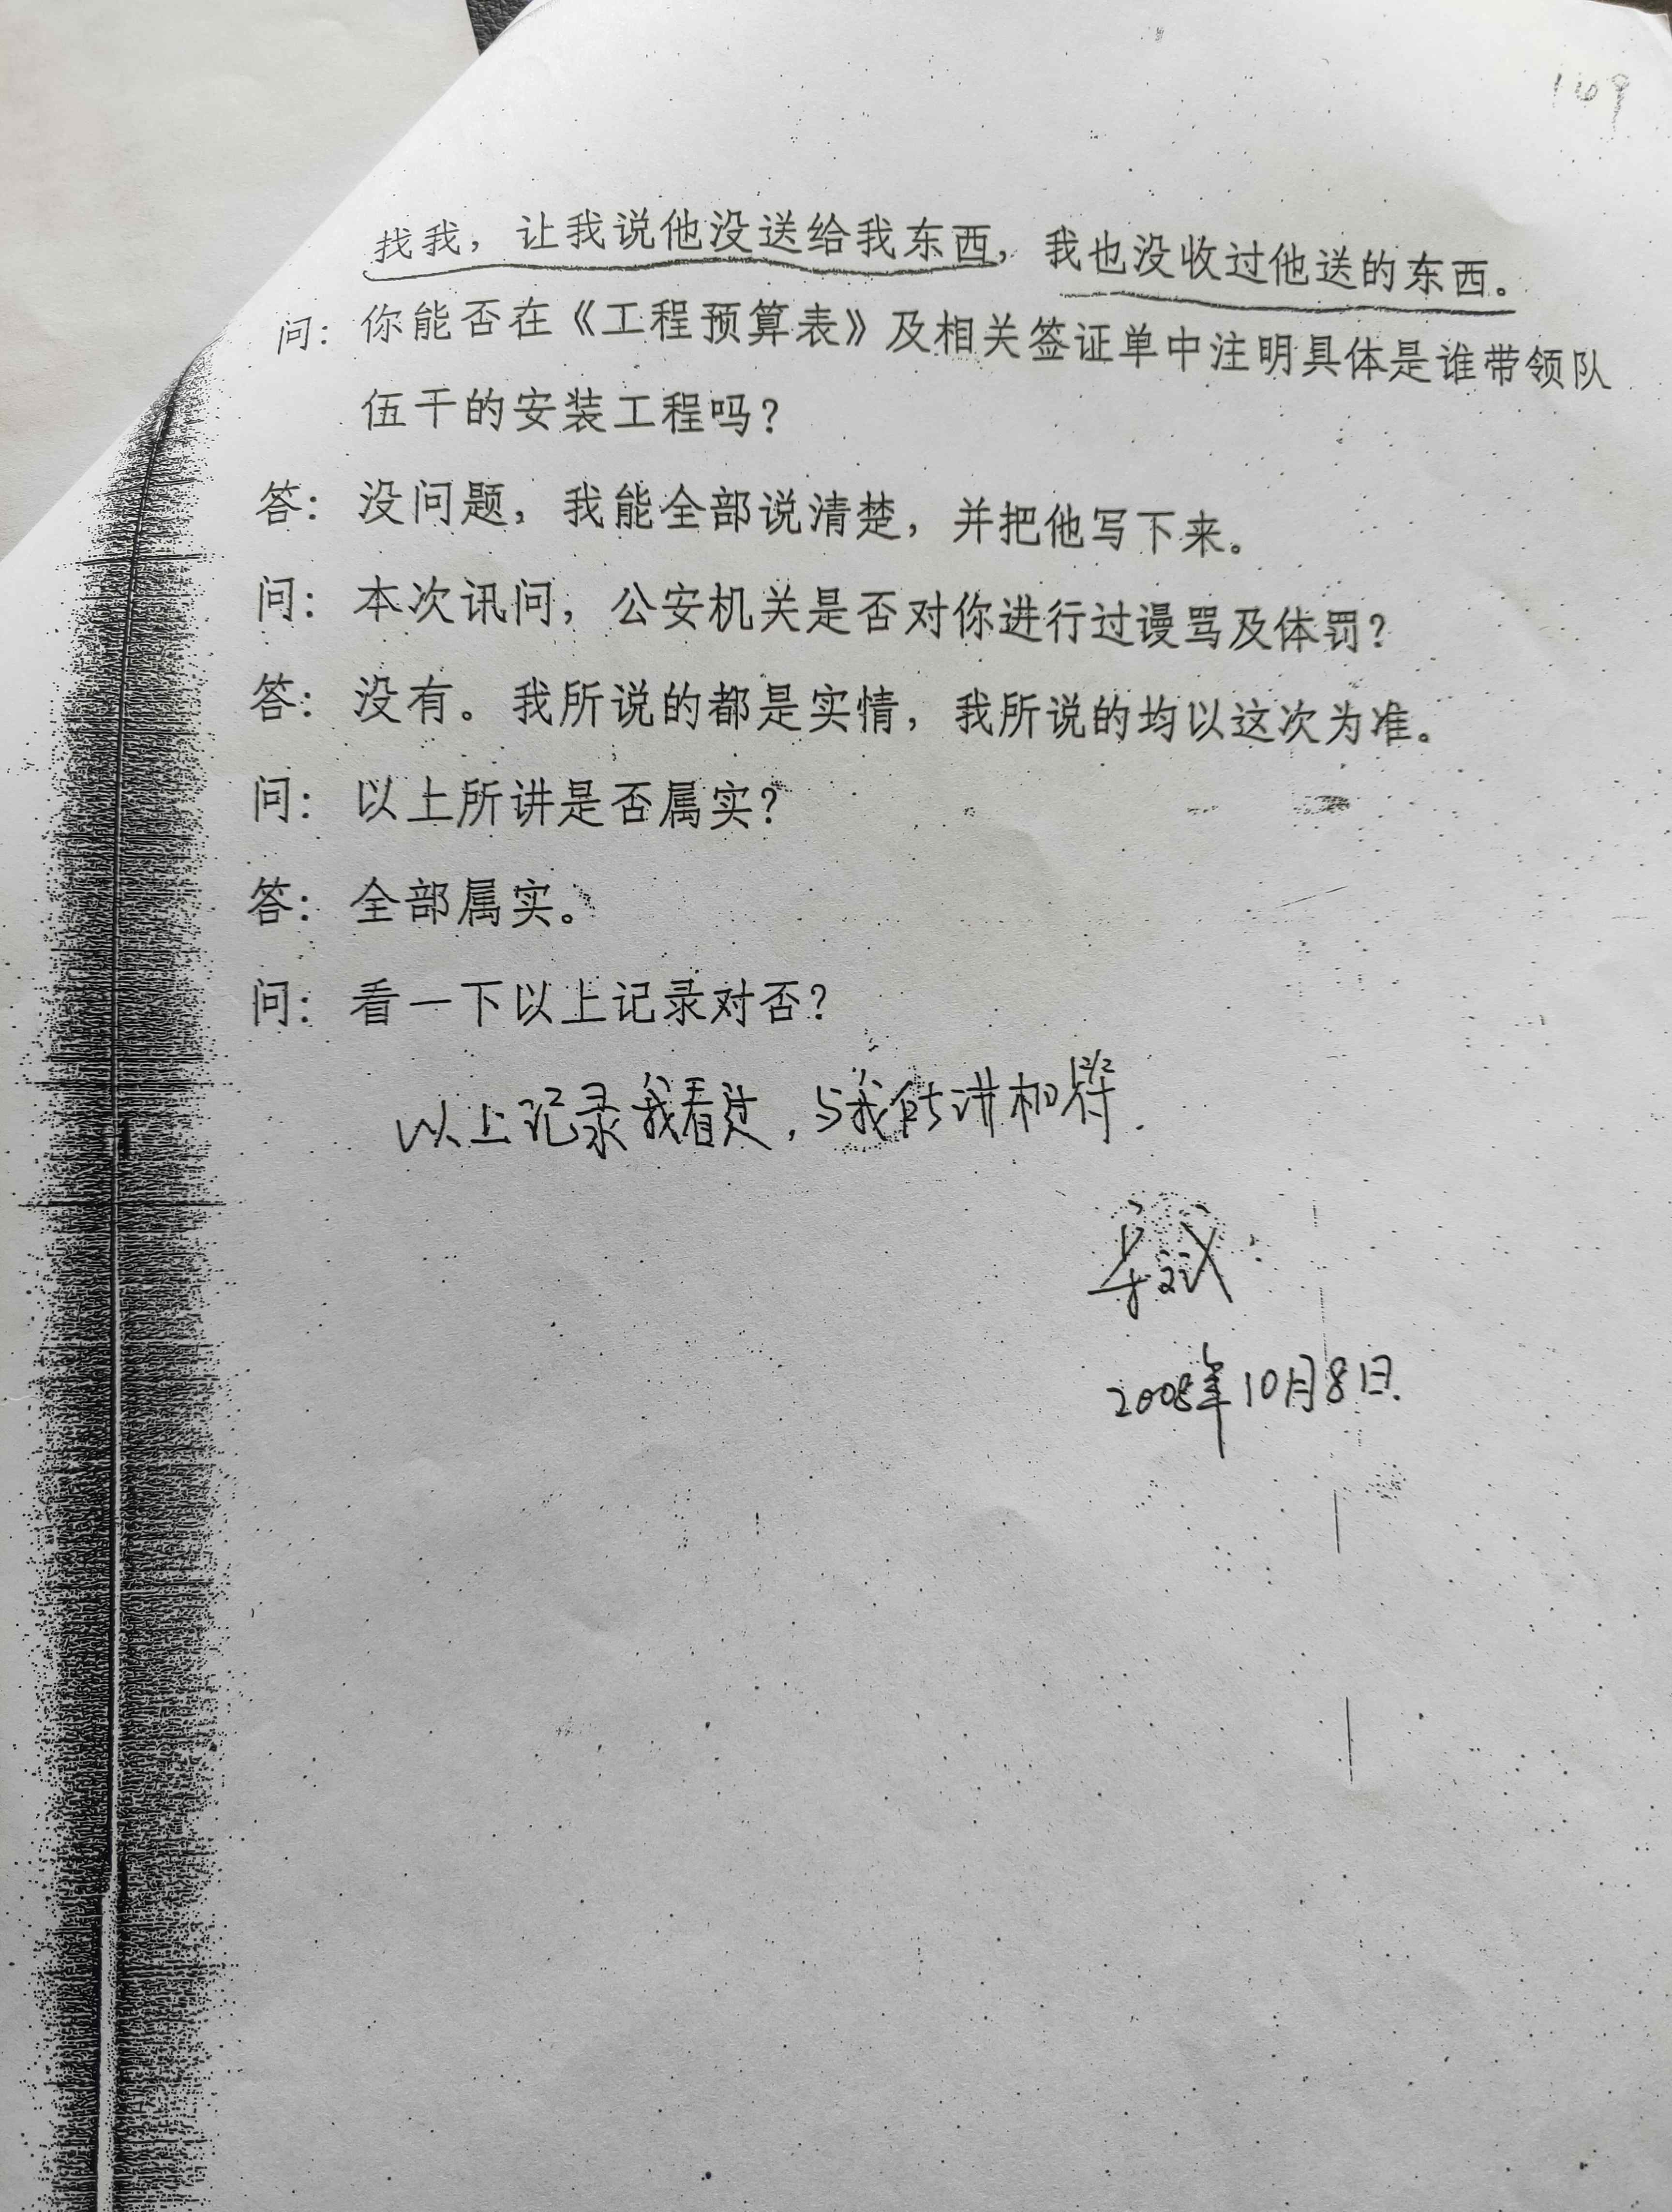 169
找我，让我说他没送给我东西，我也没收过他送的东西。
问：你能否在《工程预算表》及相关签证单中注明具体是谁带领队
伍干的安装工程吗？
答：没问题，我能全部说清楚，并把他写下来。
问：本次讯问，公安机关是否对你进行过谩骂及体罚？
答：没有。我所说的都是实情，我所说的均以这次为准。
问：以上所讲是否属实？
答：全部属实。
问：看一下以上记录对否？
以上记录我看过，与我所讲相符.
2008年10月8日.